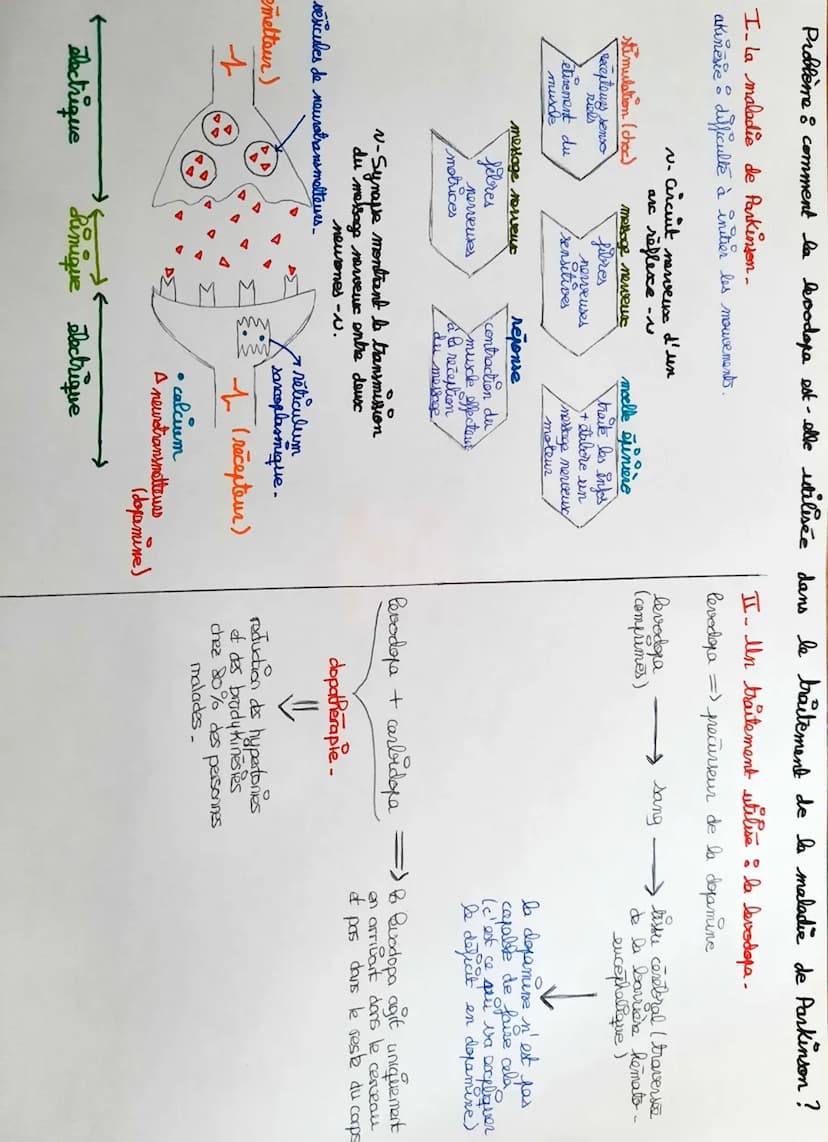 Problème : comment la levodopa est-elle utilisée dans le traitement de la maladie de Parkinson ?
I- La maladie de Parkinson -
akinésie : difficulté à initier les mouvements.
~ Circuit nerveux d'un
arc réflexe ~
stimulation (choc)
récepteurs senso
riels
étirement du
muscle
message nerveux
fibres
nerveuses
sensitives
moelle épinière
traite les infos
+ élabore un
message nerveux
moteur
message nerveux
fibres
nerveuses
motrices
réponse
contraction du
muscle effecteur
à la réception
du message
~ Synapse montrant la transmission
du message nerveux entre deux
neurones ~.
vésicules de neurotransmetteurs.
émetteur)
(récepteur)
réticulum
sarcoplasmique.
• calcium
Δ neurotransmetteurs
(dopamine)
électrique
chimique
électrique
II- Un traitement utilisé : la levodopa -
levodopa => précurseur de la dopamine
levodopa
(comprimés)
sang
tissu cérébral (traversée
de la barrière hémato-
encéphalique)
la dopamine n'est pas
capable de faire cela
(c'est ce qui va expliquer
le déficit en dopamine)
levodopa + carbidopa => la levodopa agit uniquement
en arrivant dans le cerveau
et pas dans le reste du corps
dopathérapie -
réduction des hypertonies
et des bradykinésies
chez 80% des personnes
malades -